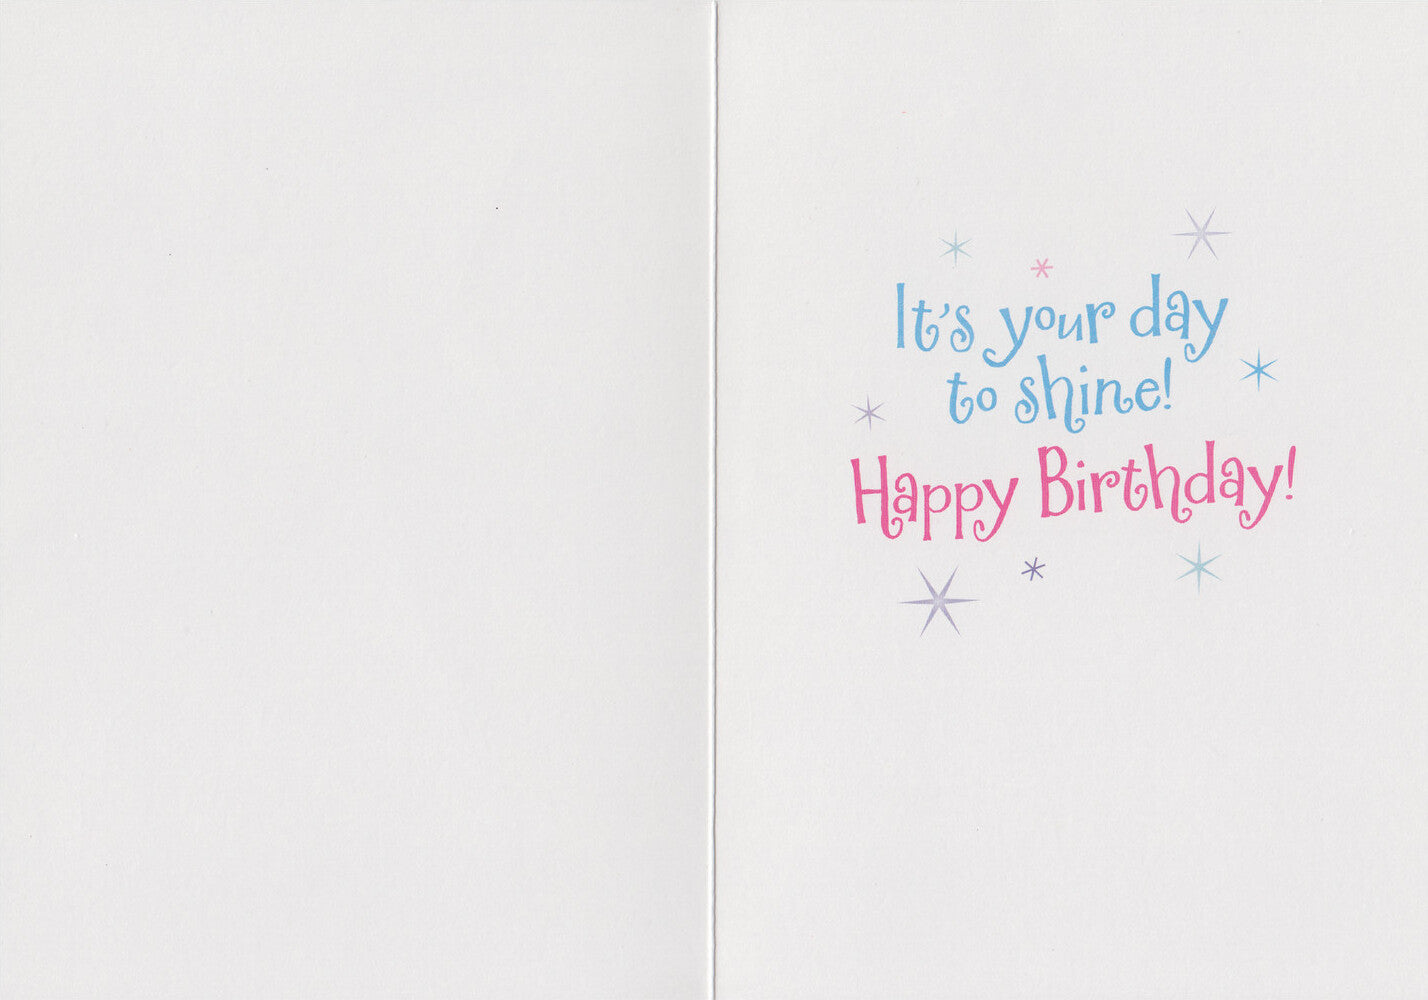 It's your day
to shine!
Happy Birthday!